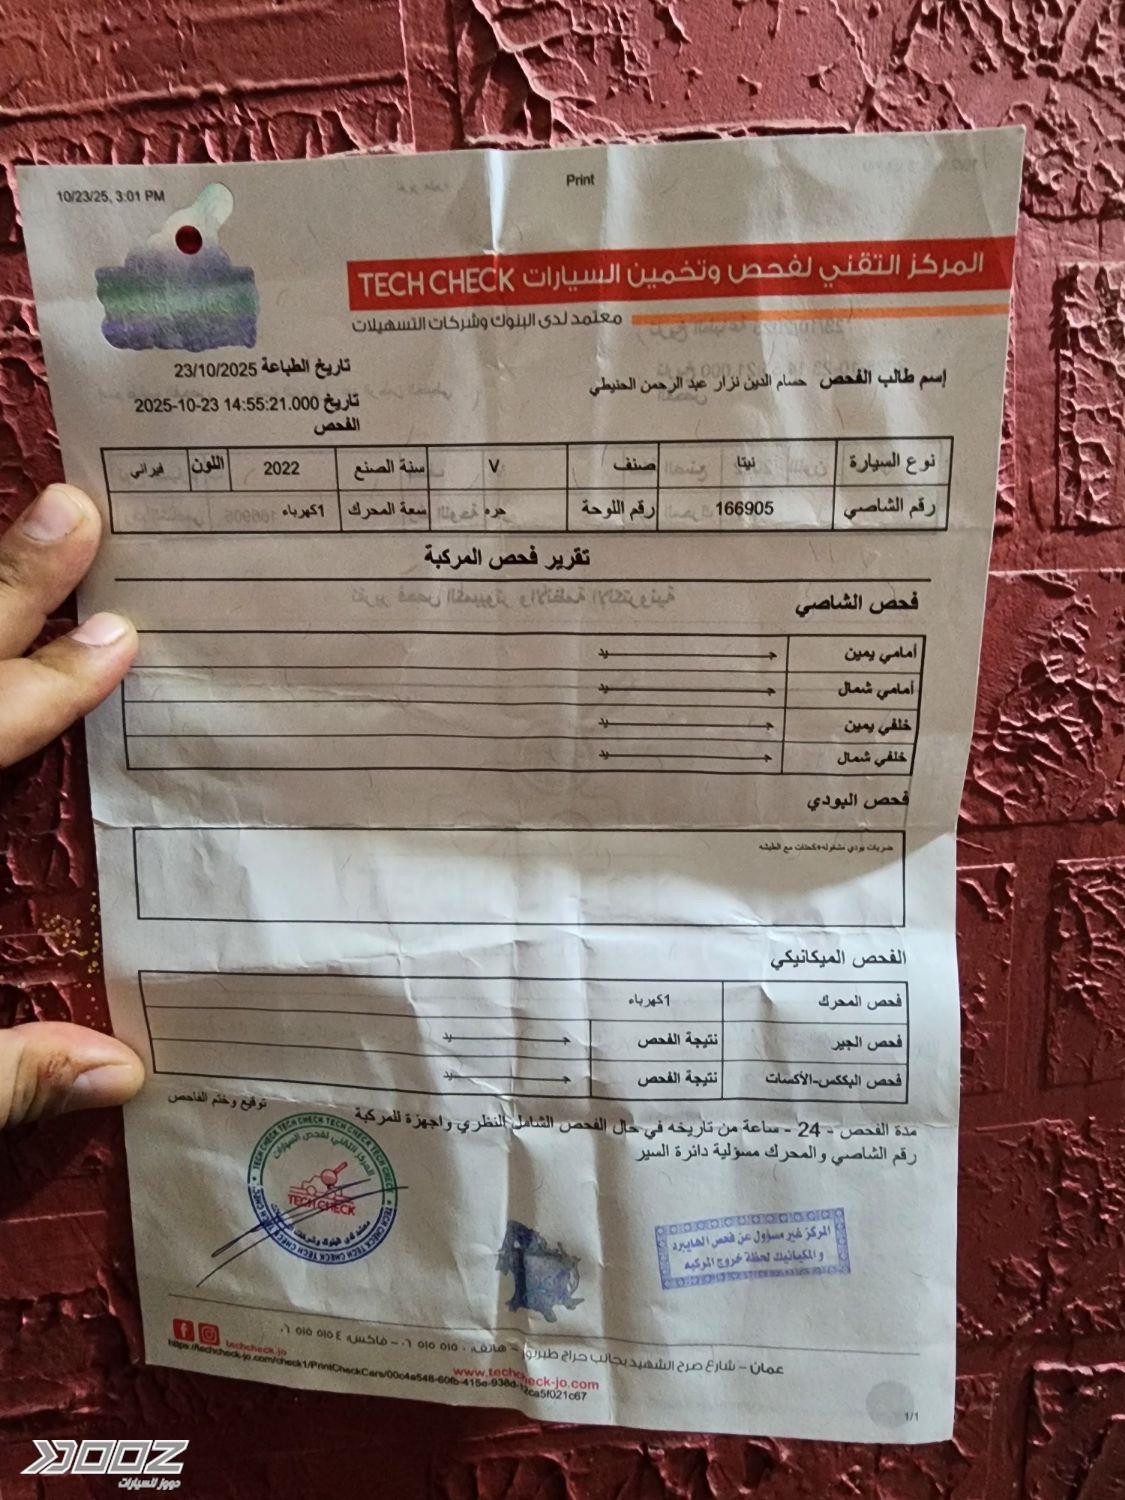 10/23/25, 3:01 PM
Print
المركز التقني لفحص وتخمين السيارات TECH CHECK
معتمد لدى البنوك وشركات التسهيلات
تاريخ الطباعة 23/10/2025
إسم طالب الفحص حسام الدين نزار عبد الرحمن الحنيطي
تاريخ الفحص 2025-10-23 14:55:21.000
نوع السيارة نيتا صنف V سنة الصنع 2022 اللون فيراني
رقم الشاصي 166905 رقم اللوحة حره سعة المحرك 1كهرباء
تقرير فحص المركبة
فحص الشاصي
أمامي يمين جيد
أمامي شمال جيد
خلفي يمين جيد
خلفي شمال جيد
فحص البودي
ضربات بودي مشغوله+كحتات مع الطيشه
الفحص الميكانيكي
فحص المحرك 1كهرباء
فحص الجير نتيجة الفحص جيد
فحص البككس-الأكسات نتيجة الفحص جيد
توقيع وختم الفاحص
مدة الفحص - 24 - ساعة من تاريخه في حال الفحص الشامل النظري واجهزة للمركبة
رقم الشاصي والمحرك مسؤلية دائرة السير
TECH CHECK TECH CHECK TECH CHECK
المركز التقني لفحص السيارات
TECH CHECK
المركز غير مسؤول عن فحص الهايبرد
والمكيانيك لحظة خروج المركبه
عمان – شارع صرح الشهيد بجانب حراج طبربور – هاتف: ٠٦ ٥١٥ ٥١٥٠ – فاكس: ٠٦ ٥١٥ ٥١٥٤
techcheck-jo
www.techcheck-jo.com
1/1
DOOZ
دووز للسيارات